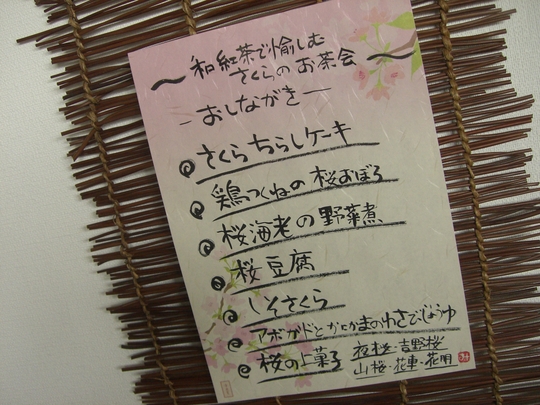 ～和紅茶で愉しむ
さくらのお茶会～
－おしながき－
さくらちらしケーキ
鶏つくねの桜おぼろ
桜海老の野菜煮
桜豆腐
しそさくら
アボガドとかにかまのわさびじょうゆ
桜の上菓子
夜桜・吉野桜
山桜・花車・花明